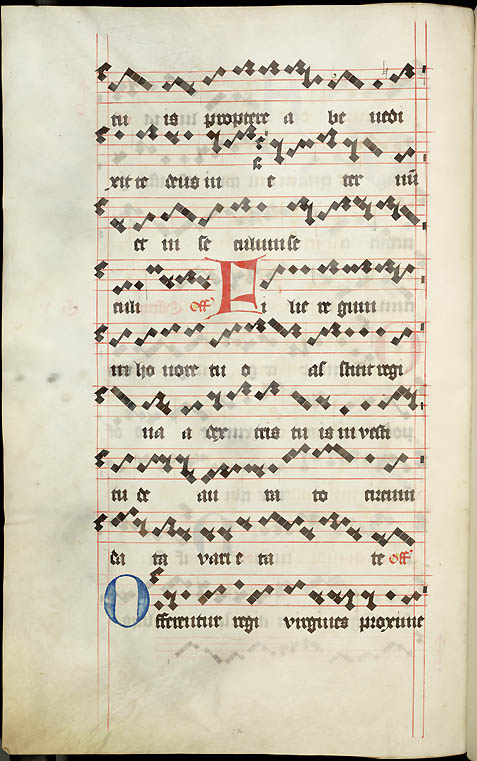 tu is proptere a be nedi
xit te deus in e ter nū
et in se culum se
culi off Fi lie re gum
in ho nore tu o as stitit regi
na a dex tris tu is in vesti
tu de au ra to circum
da ta vari e ta te off
Offerentur regi virgines proxime